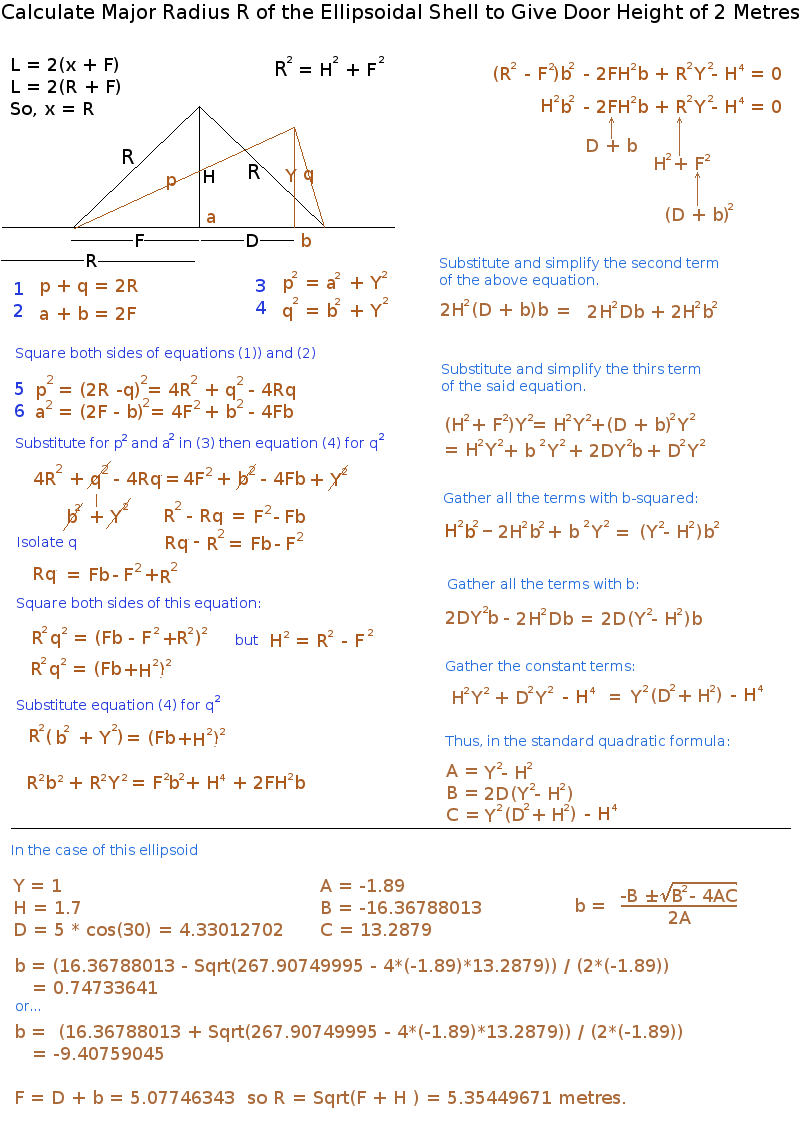 Calculate Major Radius R of the Ellipsoidal Shell to Give Door Height of 2 Metres
L = 2(x + F)
L = 2(R + F)
So, x = R
R² = H² + F²
R
p
H
R
Y q
a
F
D
b
R
1 p + q = 2R
2 a + b = 2F
3 p² = a² + Y²
4 q² = b² + Y²
Square both sides of equations (1)) and (2)
5 p² = (2R -q)²= 4R² + q² - 4Rq
6 a² = (2F - b)²= 4F² + b² - 4Fb
Substitute for p² and a² in (3) then equation (4) for q²
4R² + q² - 4Rq = 4F² + b² - 4Fb + Y²
b² + Y²
R² - Rq = F² - Fb
Isolate q
Rq - R² = Fb - F²
Rq = Fb - F² + R²
Square both sides of this equation:
R²q² = (Fb - F² +R²)²
but H² = R² - F²
R²q² = (Fb+H²)²
Substitute equation (4) for q²
R²( b² + Y²) = (Fb+H²)²
R²b² + R²Y² = F²b²+ H⁴ + 2FH²b
(R² - F²)b² - 2FH²b + R²Y²- H⁴ = 0
H²b² - 2FH²b + R²Y²- H⁴ = 0
D + b
H²+ F²
(D + b)²
Substitute and simplify the second term
of the above equation.
2H²(D + b)b = 2H²Db + 2H²b²
Substitute and simplify the thirs term
of the said equation.
(H²+ F²)Y²= H²Y²+(D + b)²Y²
= H²Y²+ b ²Y² + 2DY²b + D²Y²
Gather all the terms with b-squared:
H²b² – 2H²b² + b ²Y² = (Y²- H²)b²
Gather all the terms with b:
2DY²b - 2H²Db = 2D(Y²- H²)b
Gather the constant terms:
H²Y² + D²Y² - H⁴ = Y²(D²+ H²) - H⁴
Thus, in the standard quadratic formula:
A = Y²- H²
B = 2D(Y²- H²)
C = Y²(D²+ H²) - H⁴
In the case of this ellipsoid
Y = 1
H = 1.7
D = 5 * cos(30) = 4.33012702
A = -1.89
B = -16.36788013
C = 13.2879
b = -B ±√B²- 4AC
2A
b = (16.36788013 - Sqrt(267.90749995 - 4*(-1.89)*13.2879)) / (2*(-1.89))
= 0.74733641
or...
b = (16.36788013 + Sqrt(267.90749995 - 4*(-1.89)*13.2879)) / (2*(-1.89))
= -9.40759045
F = D + b = 5.07746343 so R = Sqrt(F + H ) = 5.35449671 metres.